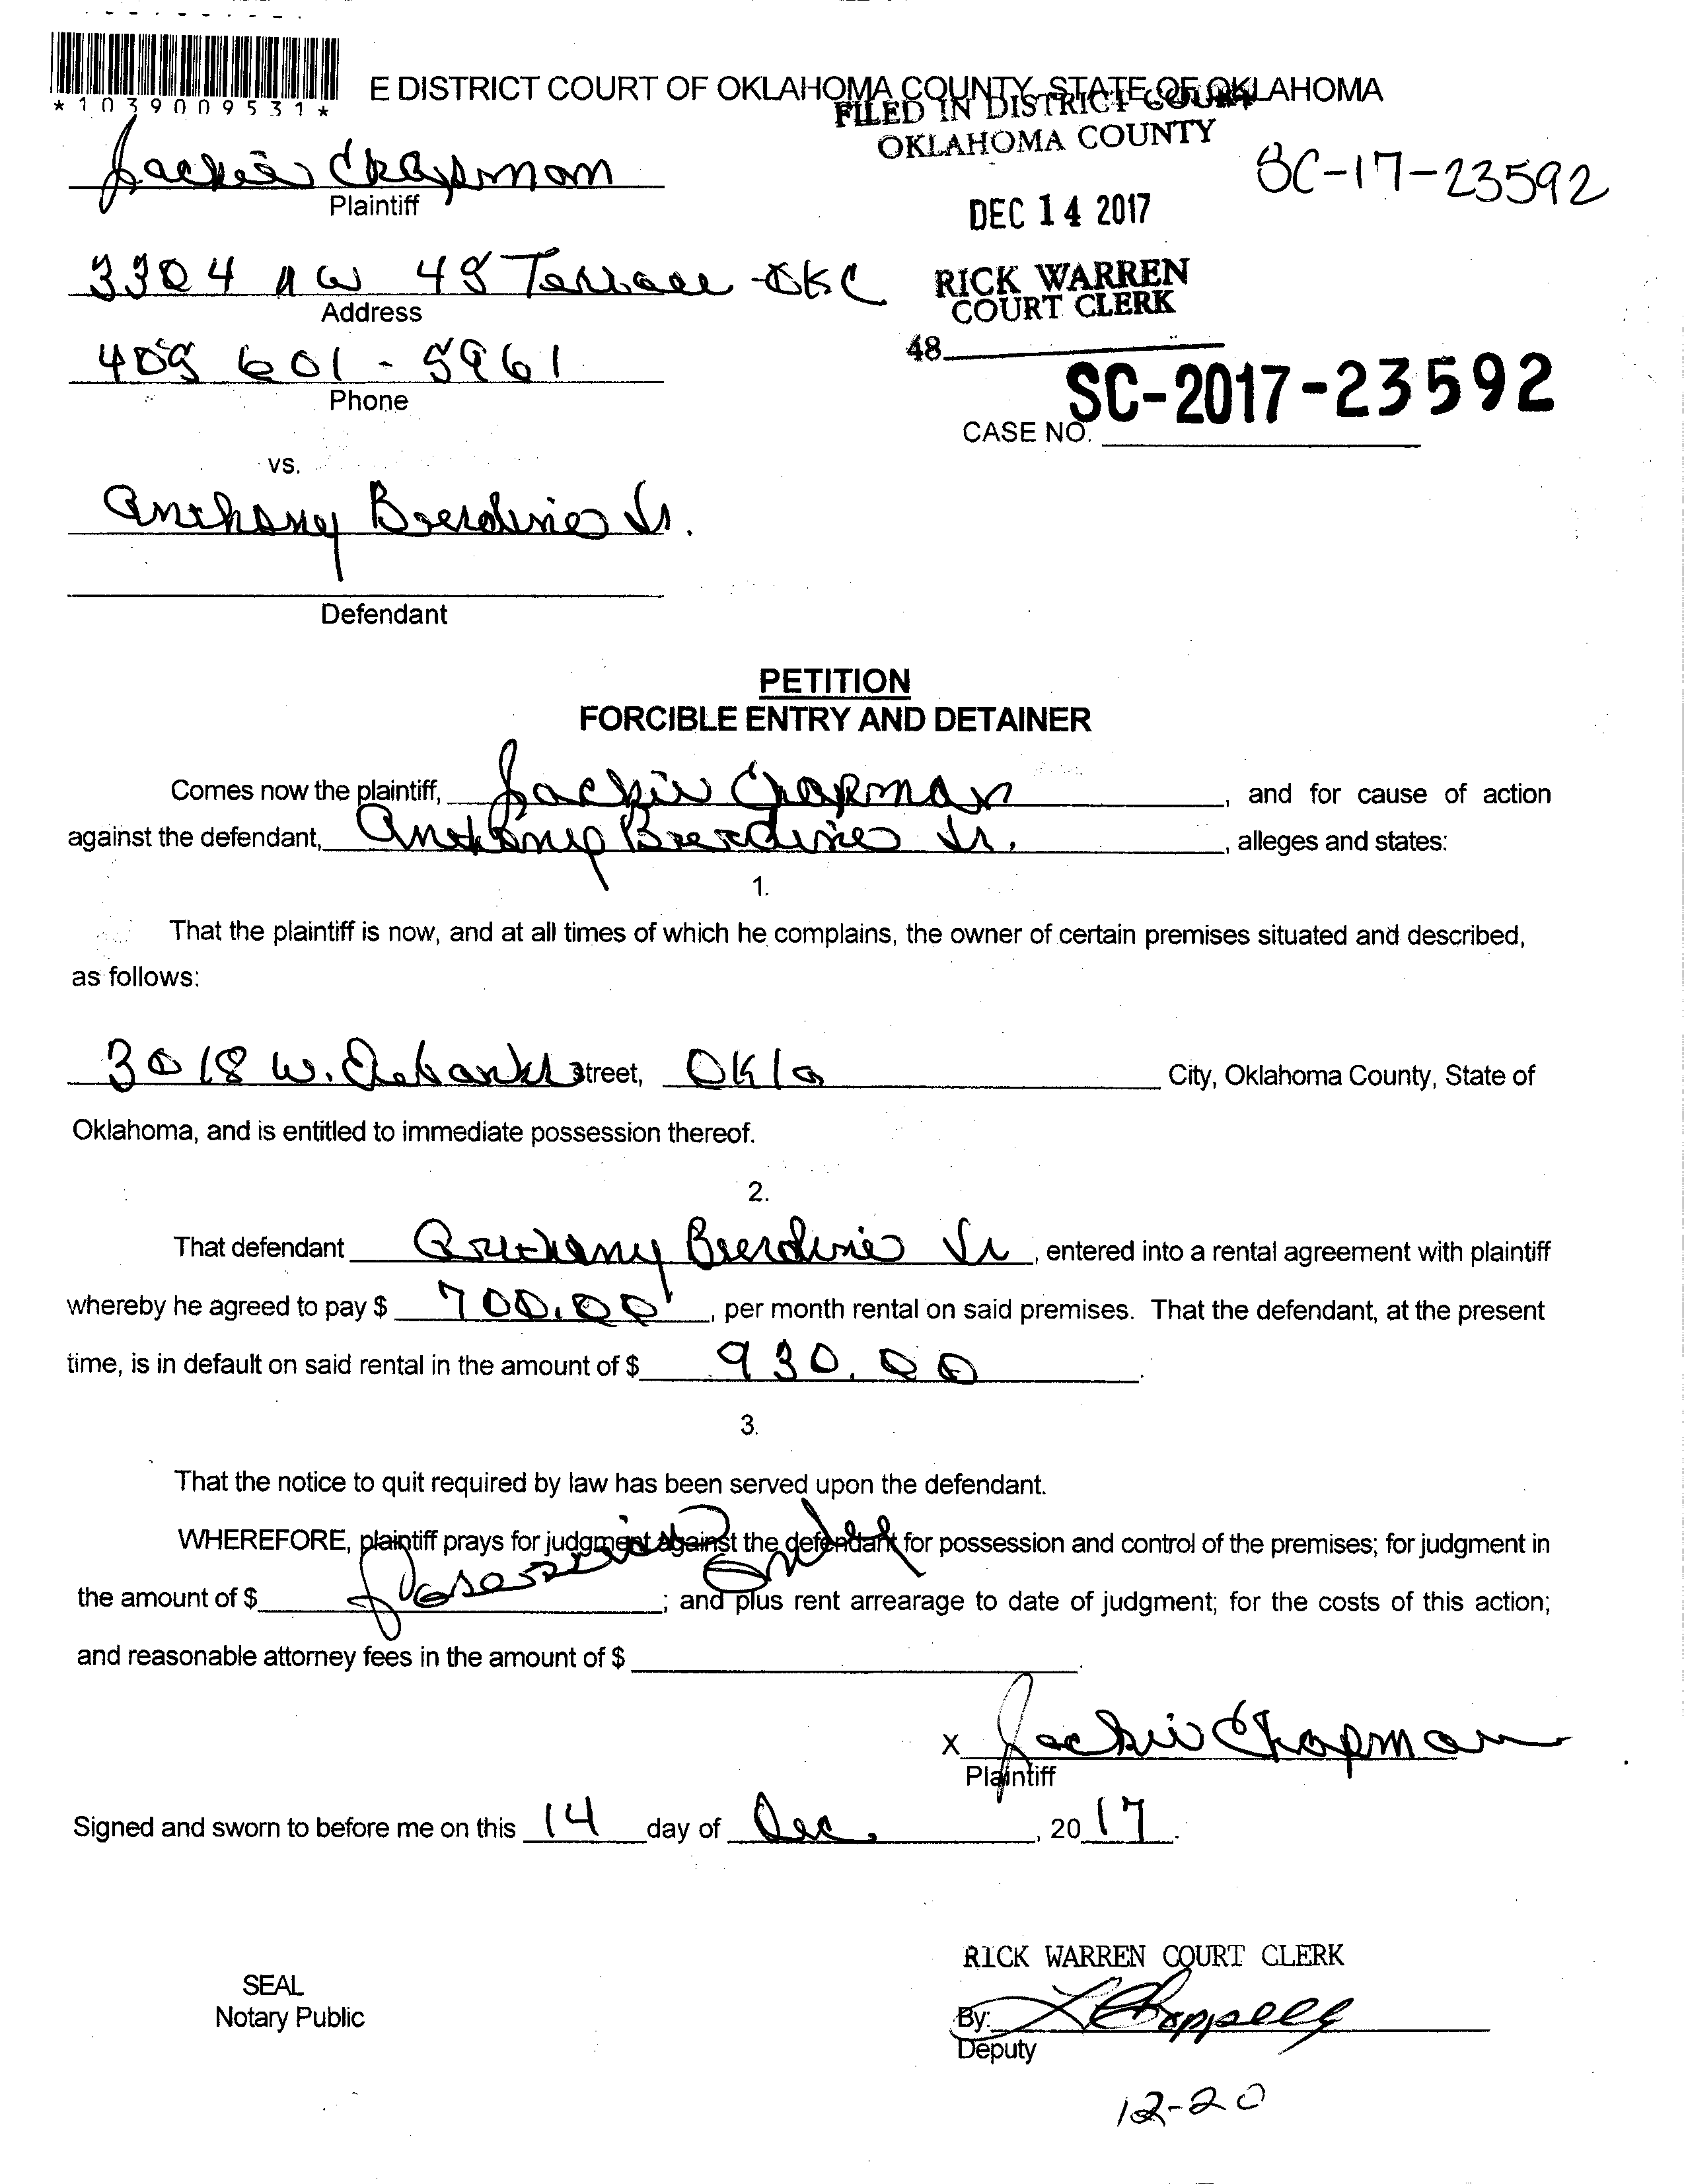 *1039009531*
E DISTRICT COURT OF OKLAHOMA COUNTY, STATE OF OKLAHOMA
FILED IN DISTRICT COURT
OKLAHOMA COUNTY
SC-17-23592
Jackie Chapman
Plaintiff
DEC 14 2017
3304 NW 48 Terrace OKC
Address
RICK WARREN
COURT CLERK
405 601-5961
Phone
48
SC-2017-23592
CASE NO.
vs.
Anthony Jr.
Defendant
PETITION
FORCIBLE ENTRY AND DETAINER
Comes now the plaintiff, Jackie Chapman, and for cause of action
against the defendant, Anthony Jr., alleges and states:
1.
That the plaintiff is now, and at all times of which he complains, the owner of certain premises situated and described,
as follows:
3018 W. street, Okla City, Oklahoma County, State of
Oklahoma, and is entitled to immediate possession thereof.
2.
That defendant Anthony Jr, entered into a rental agreement with plaintiff
whereby he agreed to pay $ 700.00, per month rental on said premises. That the defendant, at the present
time, is in default on said rental in the amount of $ 930.00.
3.
That the notice to quit required by law has been served upon the defendant.
WHEREFORE, plaintiff prays for judgment against the defendant for possession and control of the premises; for judgment in
the amount of $ Possession Only; and plus rent arrearage to date of judgment; for the costs of this action;
and reasonable attorney fees in the amount of $
x Jackie Chapman
Plaintiff
Signed and sworn to before me on this 14 day of Dec., 2017.
RICK WARREN COURT CLERK
SEAL
Notary Public
By:
Deputy
12-20